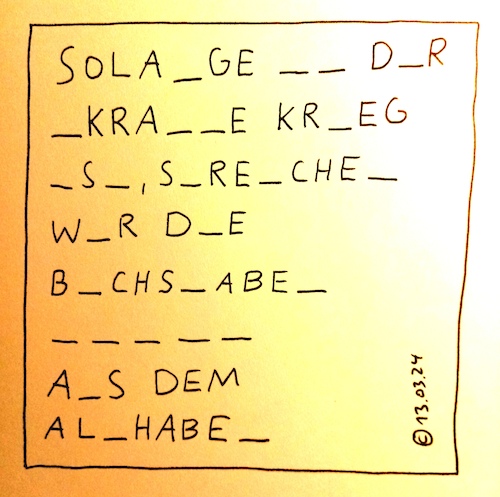 SOLA_GE _ _ D_R
_KRA_ _E KR_EG
_S_, S_RE_CHE_
W_R D_E
B_CHS_ABE_
_ _ _ _ _
A_S DEM
AL_HABE_
©13.03.24